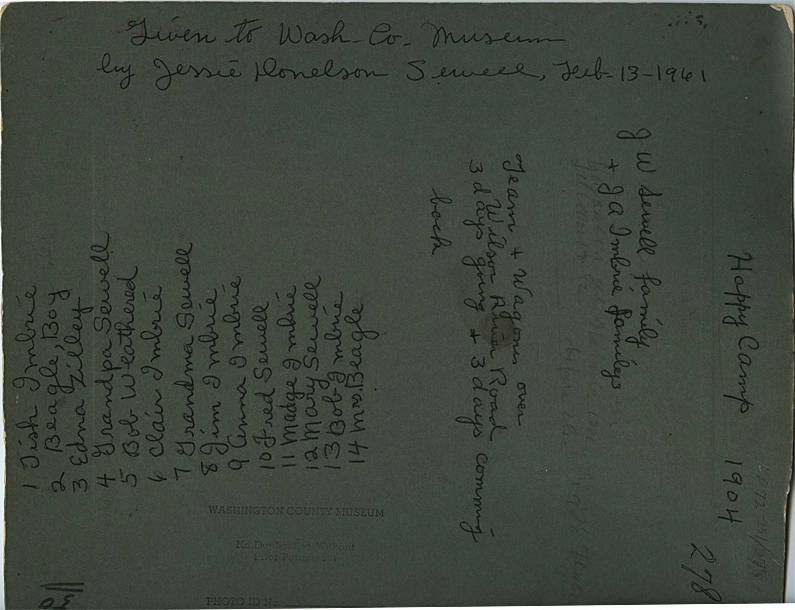 Given to Wash. Co. Museum
by Jessie Donelson Sewell, Feb-13-1961
Happy Camp 1904
J W Sewell family
+ J A Imbrie familys
Team + Wagons over
Wilson River Road
3 days going + 3 days coming
back
1 Tish Imbrie
2 Beagle, Boy
3 Edna Zilley
4 Grandpa Sewell
5 Bob Weathered
6 Clair Imbrie
7 Grandma Sewell
8 Jim Imbrie
9 Anna Imbrie
10 Fred Sewell
11 Madge Imbrie
12 Mary Sewell
13 Bob Imbrie
14 Mrs Beagle
278
WASHINGTON COUNTY MUSEUM
No Duplication Without
Prior Permission
PHOTO ID No.